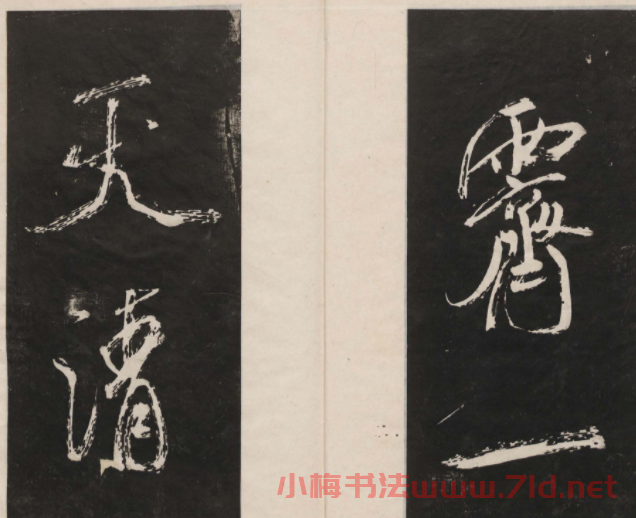 霽一
天清
小梅书法www.7ld.net